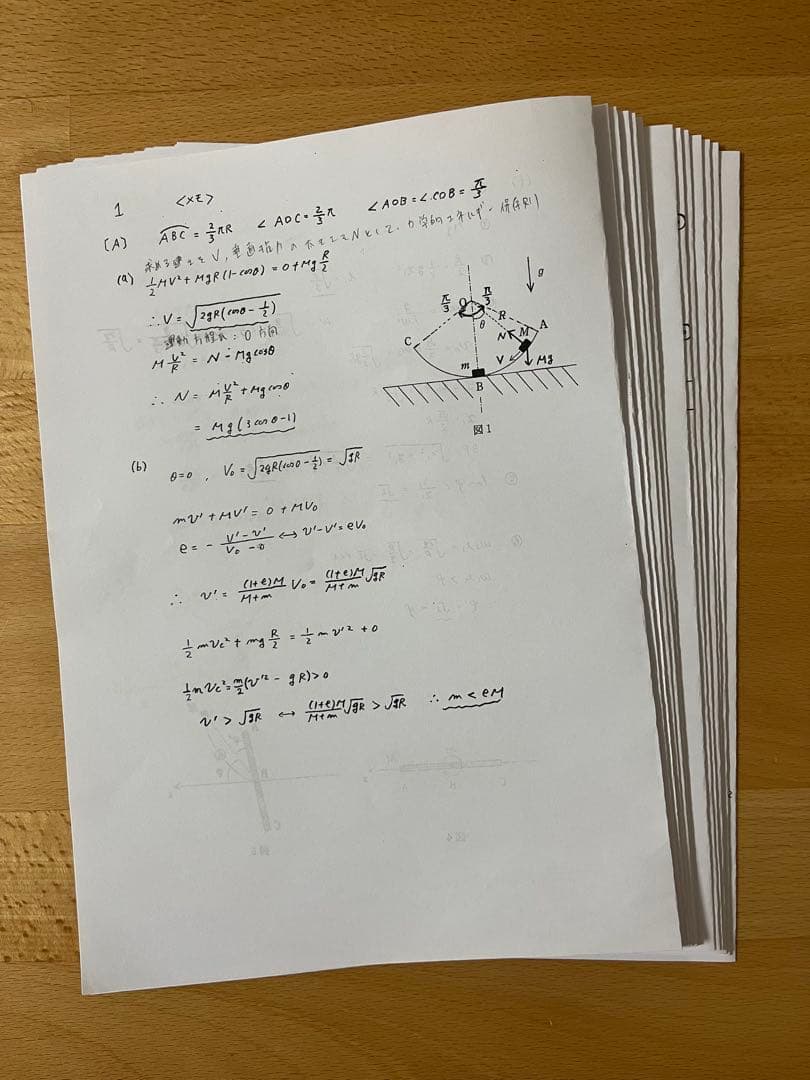 1 <メモ>
[A] ABC = 2/3 πR ∠AOC = 2/3 π ∠AOB = ∠COB = π/3
(a) 1/2 MV² + MgR(1-cosθ) = 0 + Mg R/2
∴ V = √(2gR(cosθ - 1/2))
運動方程式: O方向
M V²/R = N - Mgcosθ
∴ N = M V²/R + Mgcosθ
= Mg(3cosθ-1)
g
π/3 O π/3
R
θ
C
N M A
V
m
Mg
B
図1
(b) θ=0, V₀ = √(2gR(cosθ - 1/2)) = √gR
mv' + MV' = 0 + MV₀
e = - (V'-v')/(V₀-0) ↔ v'-V' = eV₀
∴ v' = (1+e)M/(M+m) V₀ = (1+e)M/(M+m) √gR
1/2 mvc² + mg R/2 = 1/2 mv'² + 0
1/2 mvc² = m/2 (v'² - gR) > 0
v' > √gR ↔ (1+e)M/(M+m) √gR > √gR ∴ m < eM